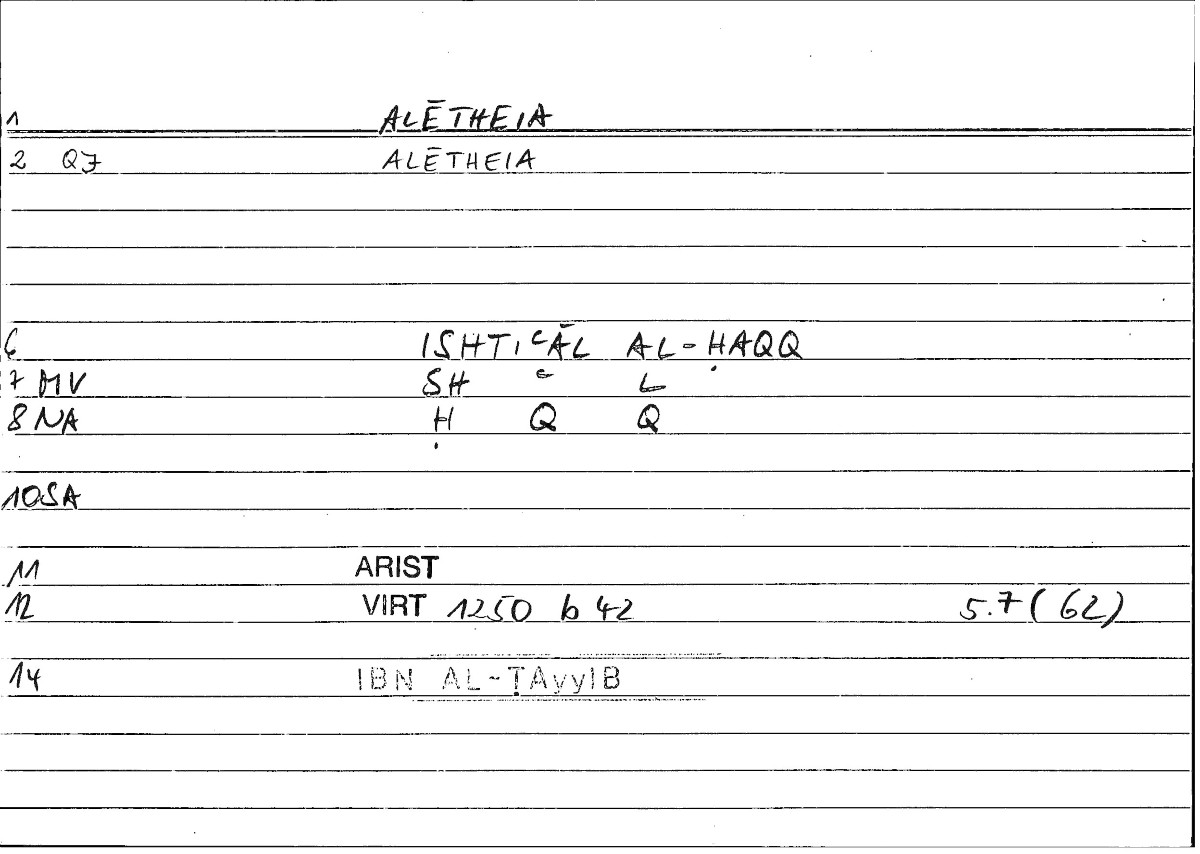 1 ALĒTHEIA
2 QJ ALĒTHEIA
6 ISHTIᶜĀL AL-ḤAQQ
7 MV SH ᶜ L
8 NA Ḥ Q Q
10 SA
11 ARIST
12 VIRT 1250 b 42 5.7 (62)
14 IBN AL-ṬAyyIB